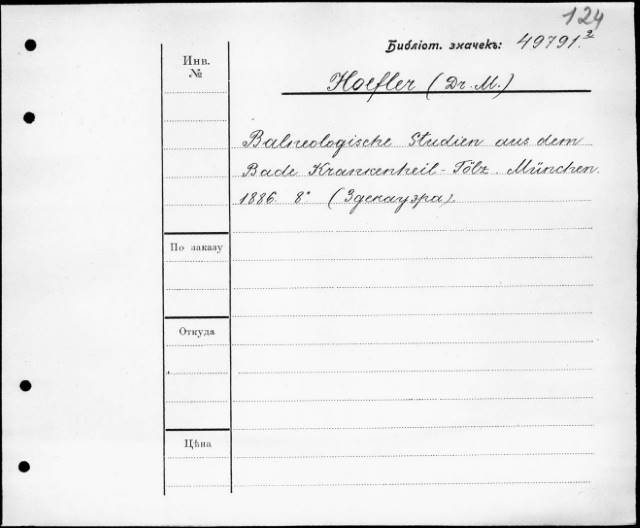 124
Библіот. значекъ: 49791.³
Инв. №
Hoefler (Dr. M.)
Balneologische Studien aus dem
Bade Krankenheil-Tölz. München.
1886. 8° (Здекауэра).
По заказу
Откуда
Цѣна